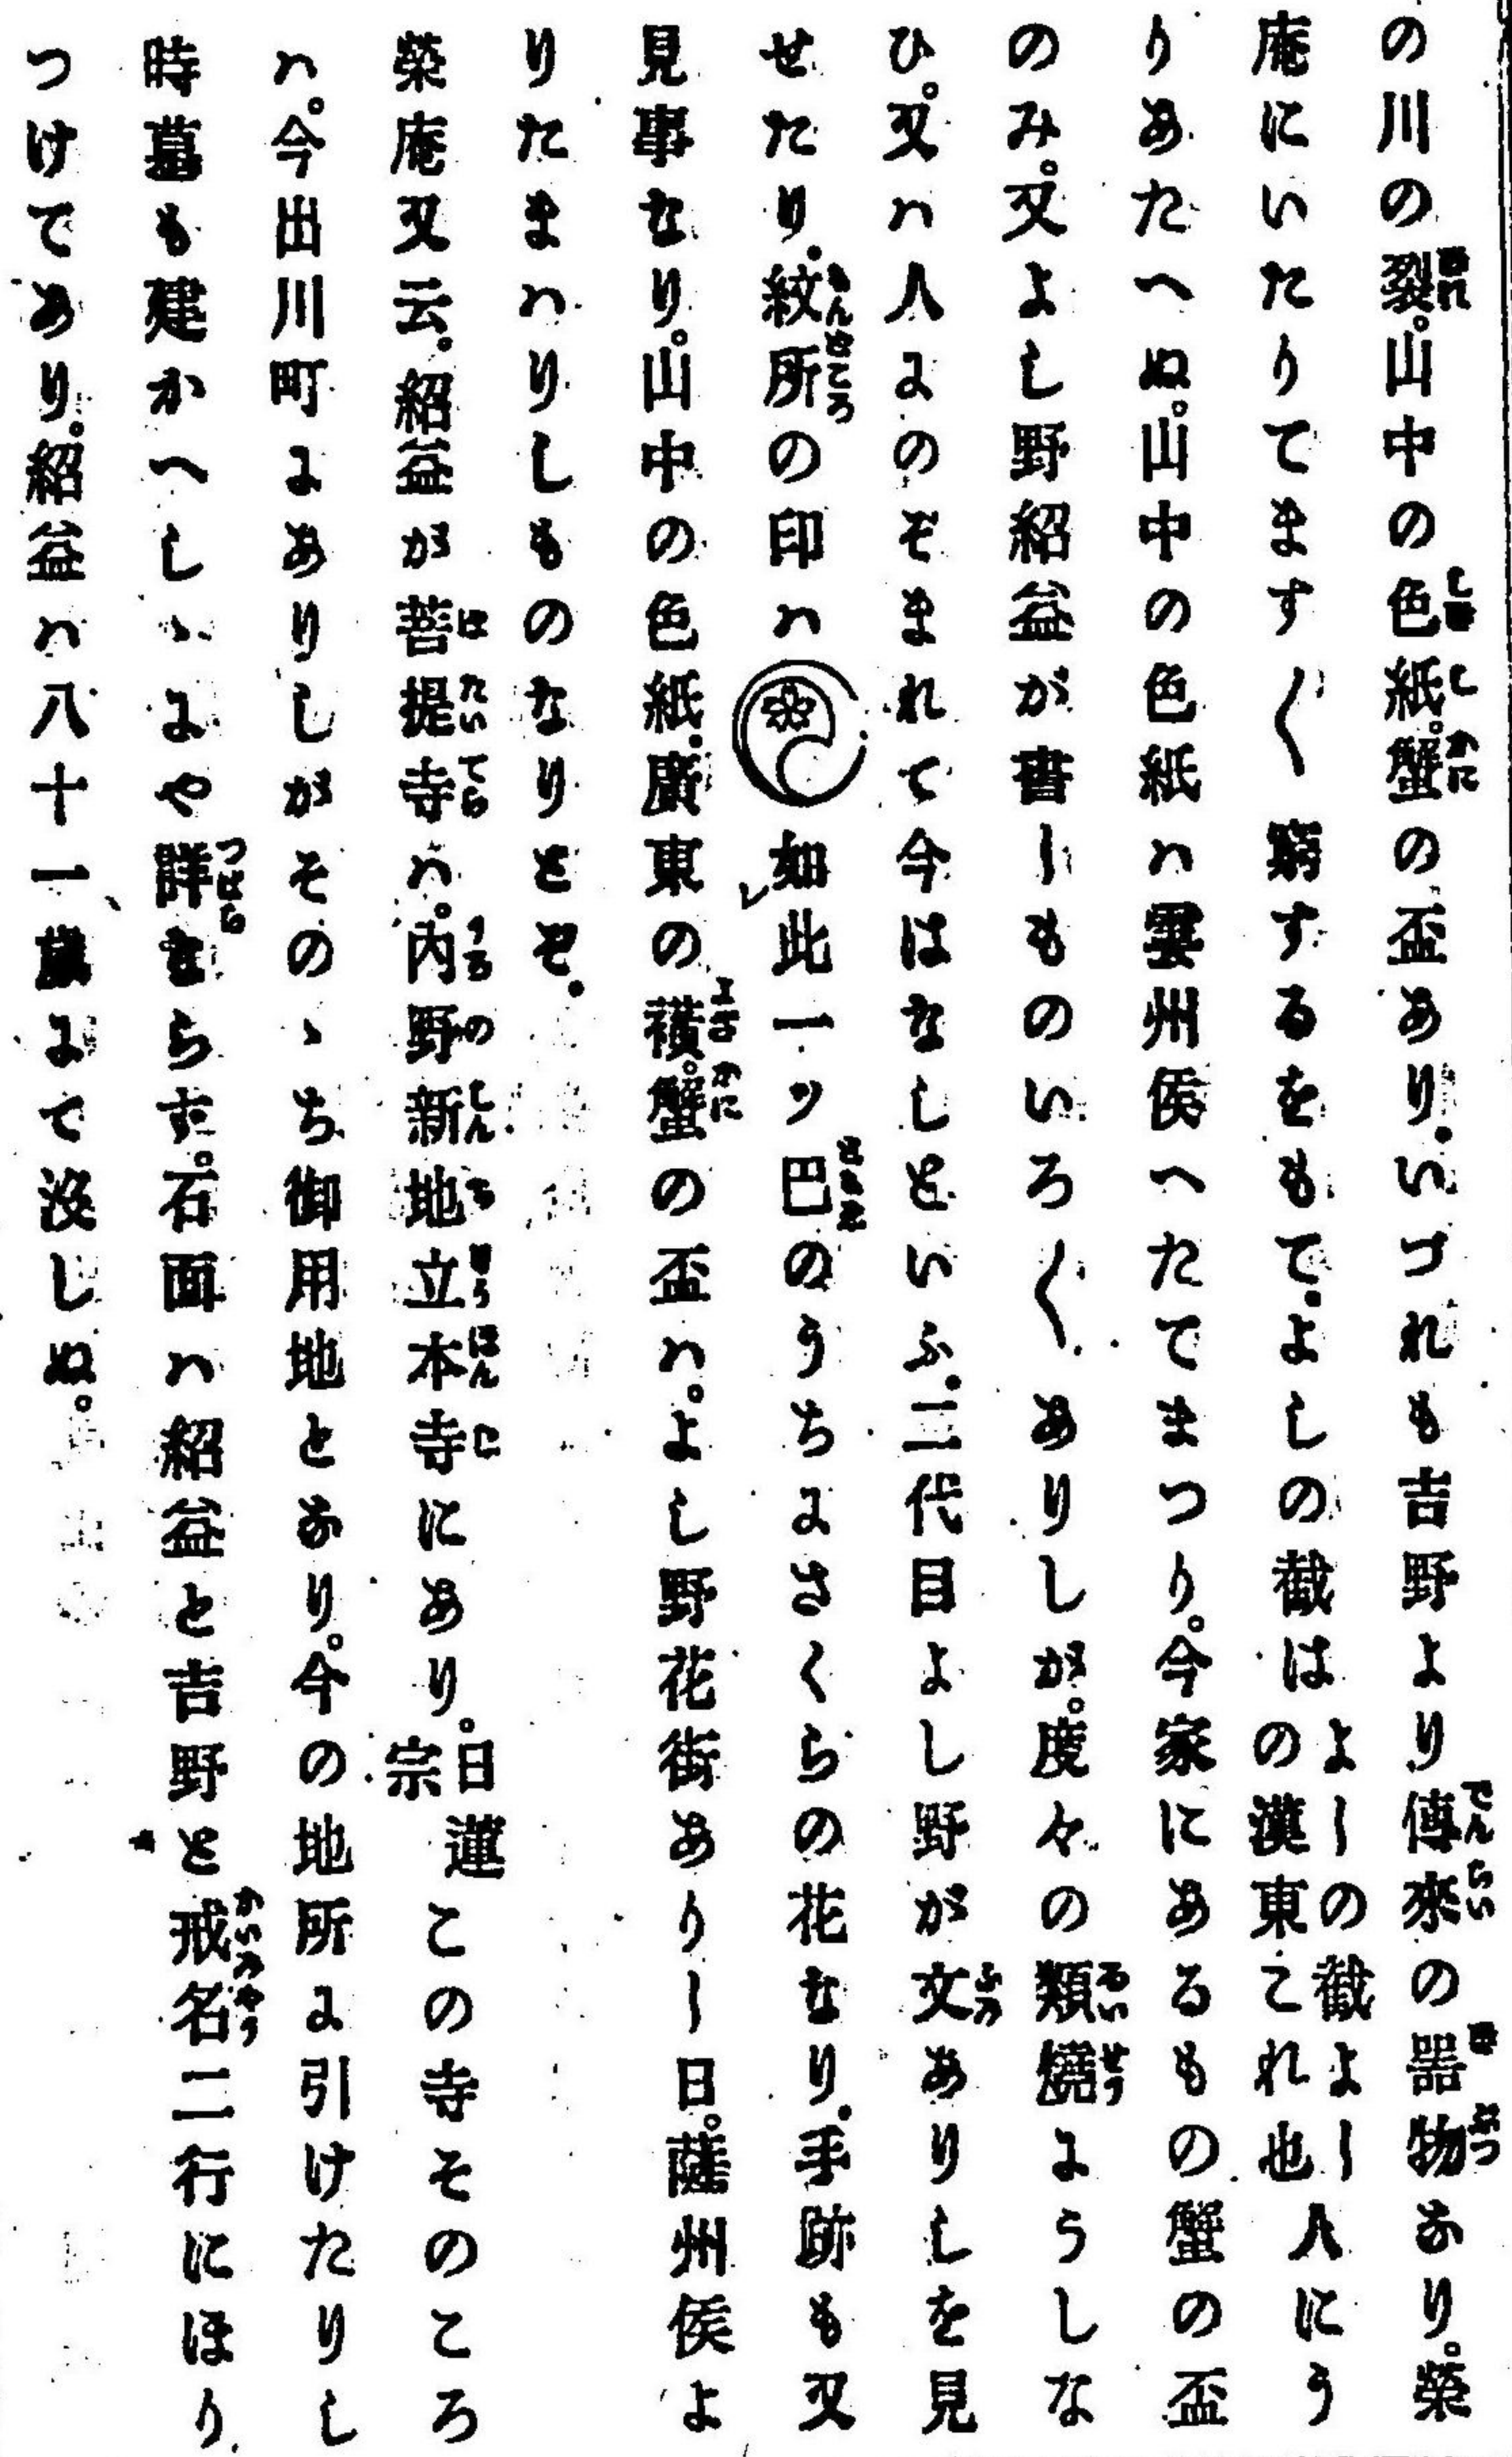 の川の裂。山中の色紙。蟹の盃あり。いづれも吉野より傳來の器物なり。榮
庵にいたりてます〱窮するをもて。よしの截はよしの截よしの漢東これ也人にう
りあたへぬ。山中の色紙ハ雲州侯へたてまつり。今家にあるもの蟹の盃
のみ。又よし野紹益が書しものいろ〱ありしが。度々の類燒にうしな
ひ。又ハ人にのぞまれて今はなしといふ。二代目よし野が文ありしを見
せたり。紋所の印ハ如此一ッ巴のうちにさくらの花なり。手跡も又
見事なり。山中の色紙。廣東の襆。蟹の盃ハ。よし野花街ありし日。薩州侯よ
りたまハりしものなりとぞ。
榮庵又云。紹益が菩提寺ハ。内野新地立本寺にあり。日蓮宗この寺そのころ
ハ。今出川町にありしがそのゝち御用地となり。今の地所に引けたりし
時墓も建かへしゝにや詳ならず。石面ハ紹益と吉野と戒名二行にほり
つけてあり。紹益ハ八十一歳にて沒しぬ。